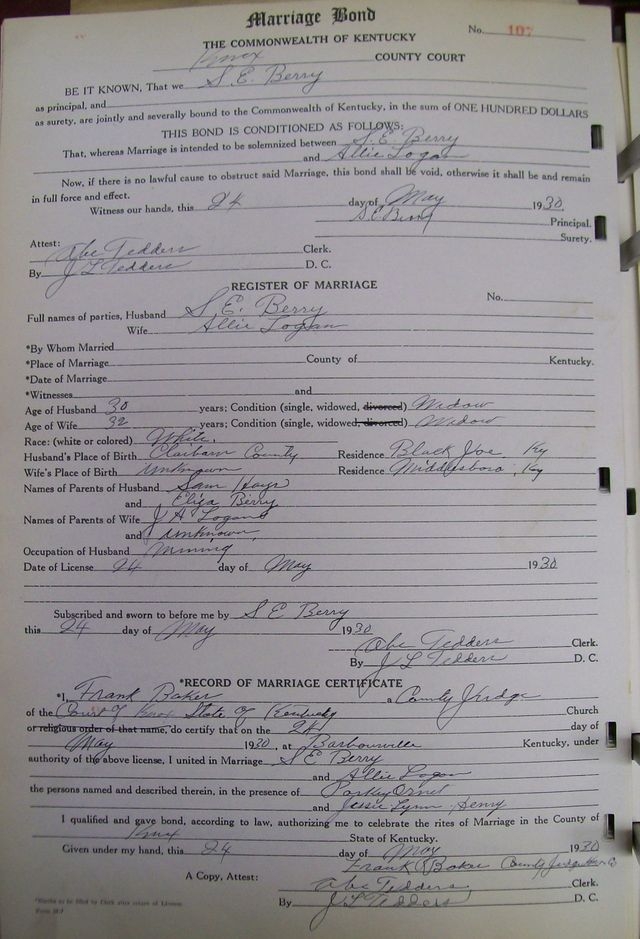 Marriage Bond
No. 107
THE COMMONWEALTH OF KENTUCKY
Knox COUNTY COURT
BE IT KNOWN, That we S. E. Berry
as principal, and
as surety, are jointly and severally bound to the Commonwealth of Kentucky, in the sum of ONE HUNDRED DOLLARS
THIS BOND IS CONDITIONED AS FOLLOWS:
That, whereas Marriage is intended to be solemnized between S. E. Berry
and Allie Logan
Now, if there is no lawful cause to obstruct said Marriage, this bond shall be void, otherwise it shall be and remain
in full force and effect.
Witness our hands, this 24 day of May 1930.
S E Berry Principal.
Surety.
Attest:
Abe Tedders Clerk.
By J L Tedders D. C.
REGISTER OF MARRIAGE
No.
Full names of parties, Husband S. E. Berry
Wife Allie Logan
*By Whom Married
*Place of Marriage County of Kentucky.
*Date of Marriage
*Witnesses and
Age of Husband 30 years; Condition (single, widowed, divorced) Widow
Age of Wife 32 years; Condition (single, widowed, divorced) Widow
Race: (white or colored) White.
Husband's Place of Birth Claibarn County Residence Black Joe, Ky
Wife's Place of Birth Unknown Residence Middlesboro, Ky
Names of Parents of Husband Sam Hays
and Eliza Berry
Names of Parents of Wife J A Logan
and Unknown,
Occupation of Husband Mining
Date of License 24 day of May 1930.
Subscribed and sworn to before me by S E Berry
this 24 day of May 1930
Abe Tedders Clerk.
By J L Tedders D. C.
*RECORD OF MARRIAGE CERTIFICATE
*I, Frank Baker a County Judge
of the Court of Knox State of Kentucky Church
or religious order of that name, do certify that on the 24 day of
May 1930, at Barbourville Kentucky, under
authority of the above license, I united in Marriage S E Berry
and Allie Logan
the persons named and described therein, in the presence of
and Jessie Lynn Henry
I qualified and gave bond, according to law, authorizing me to celebrate the rites of Marriage in the County of
Knox State of Kentucky.
Given under my hand, this 24 day of May 1930
Frank Baker County Judge
A Copy, Attest: Abe Tedders Clerk.
By J L Tedders D. C.
*Blanks to be filled by Clerk after return of License